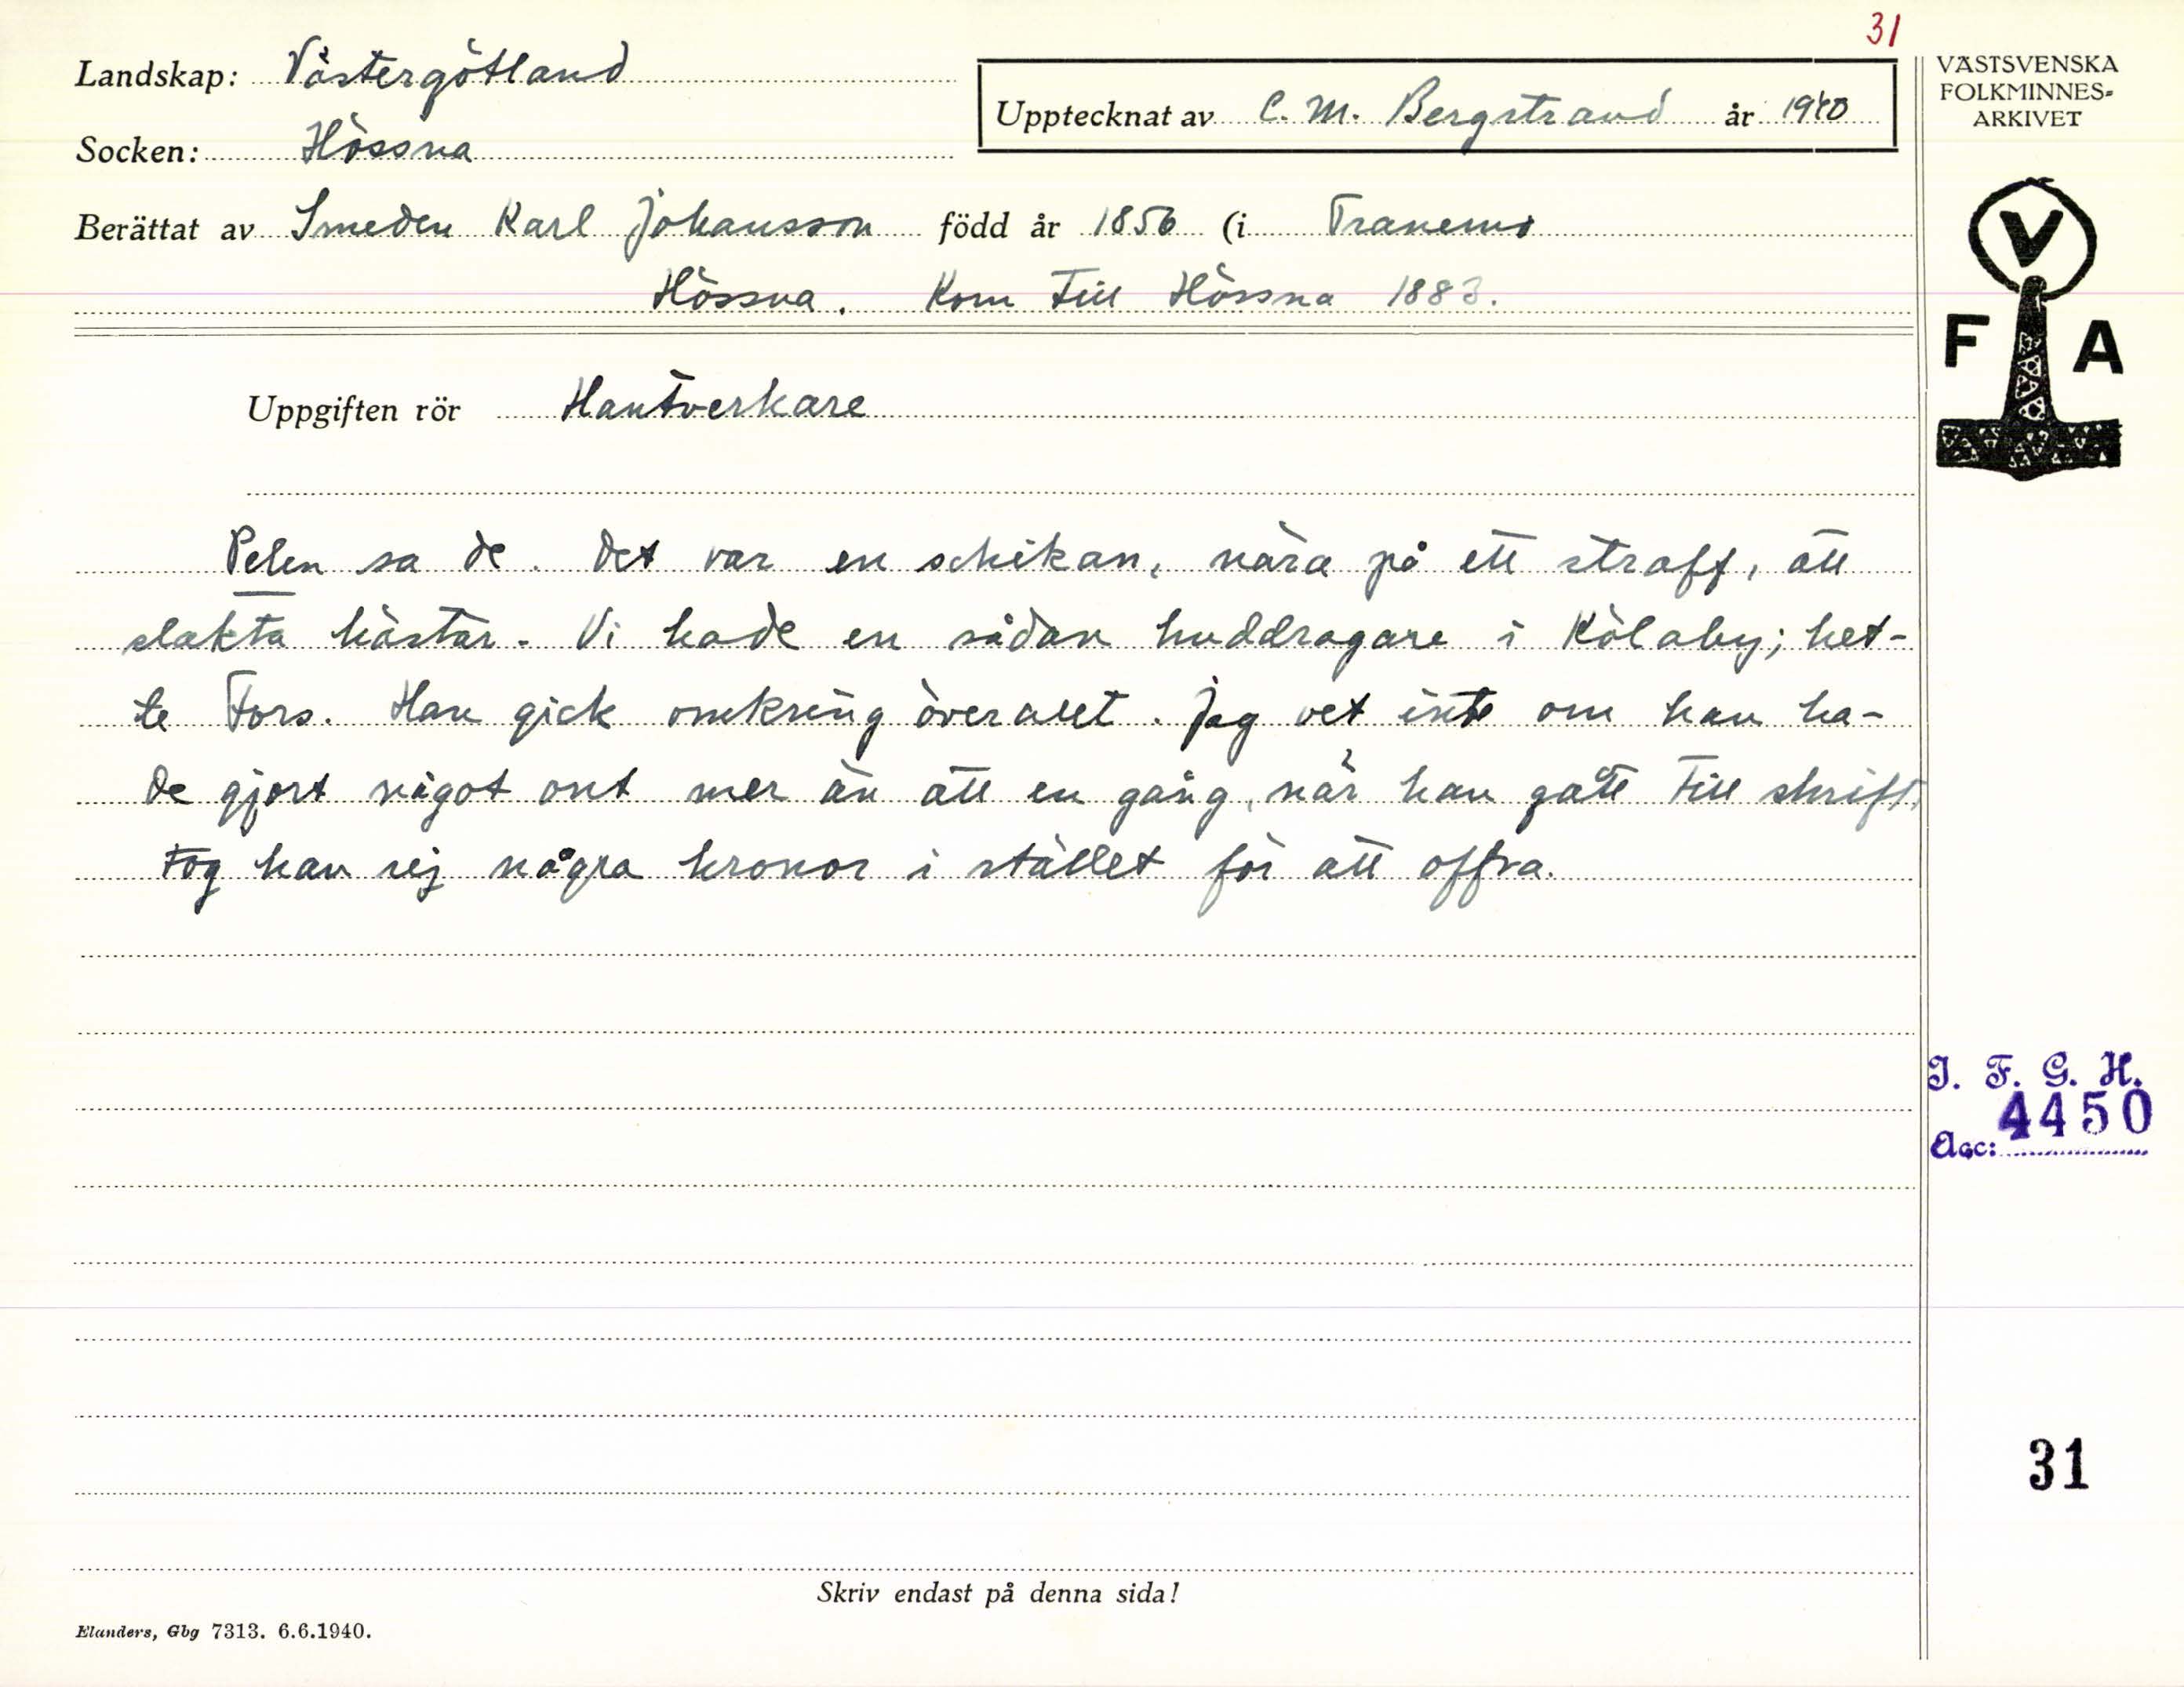 31
Landskap: Västergötland
Socken: Hössna
Upptecknat av C. M. Bergstrand år 1940
Berättat av Smeden Karl Johansson född år 1856 (i Tranemo
Hössna. Kom till Hössna 1883.
Uppgiften rör Hantverkare
Pelen sa de. Det var en schikan, nära på ett straff, att
slakta hästar. Vi hade en sådan huddragare i Kölaby; het-
te Fors. Han gick omkring överallt. Jag vet inte om han ha-
de gjort något ont mer än att en gång, när han gått till skrift,
tog han sej några kronor i stället för att offra.
Skriv endast på denna sida!
Elanders, Gbg 7313. 6.6.1940.
VÄSTSVENSKA
FOLKMINNES-
ARKIVET
V
F A
I. F. G. H.
4450
Acc:
31